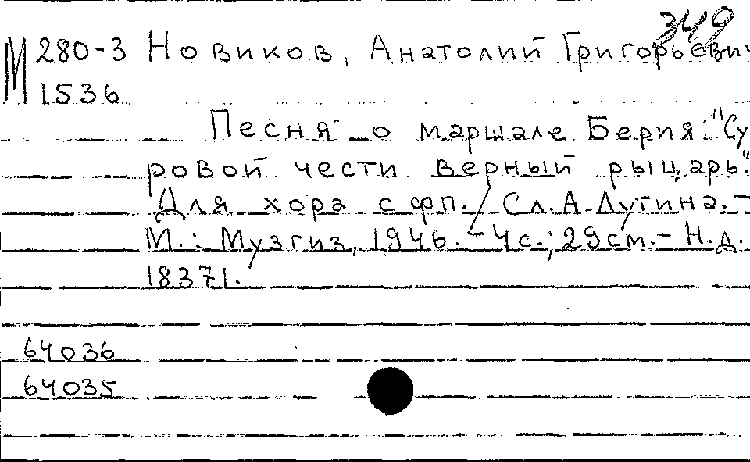 349
М 280-3 Новиков, Анатолий Григорьевич
1536
Песня о маршале Берия: "Су
ровой чести верный рыцарь."
Для хора с фп. / Сл. А. Лугина. -
М.: Музгиз, 1946. - 4с.; 29см. - Н.д.
18371.
64036
64035